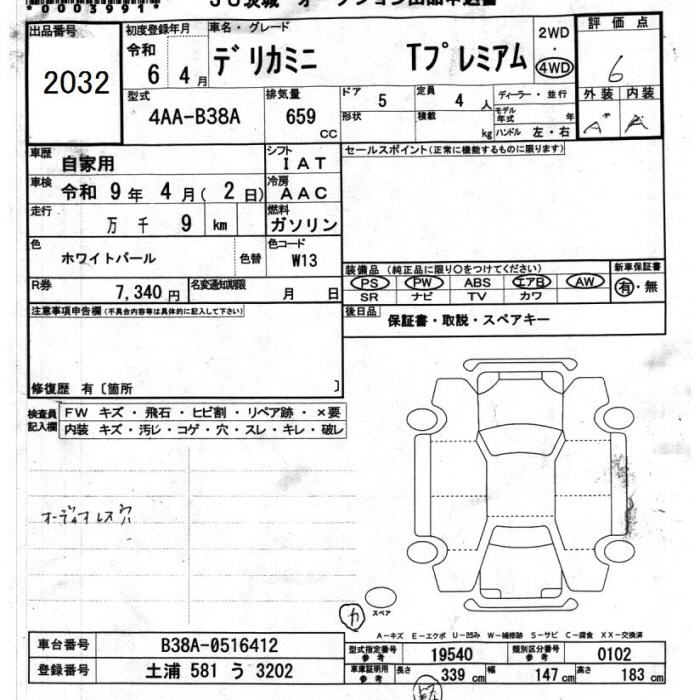 出品番号
2032
初度登録年月
令和
6 4月
車名・グレード
デリカミニ Tプレミアム
2WD
・
4WD
評価点
6
外装 内装
A A
型式
4AA-B38A
排気量
659
CC
ドア 5
形状
定員 4 人
積載 kg
ディーラー・並行
モデル年式 年
ハンドル 左・右
車歴
自家用
シフト
IAT
車検
令和 9年 4月( 2日)
冷房
AAC
走行
万 千 9 km
燃料
ガソリン
色
ホワイトパール
色替
色コード
W13
R券
7,340円
名変通知期限
月 日
セールスポイント(正常に機能するものに限ります)
装備品 (純正品に限り○をつけてください)
PS PW ABS エアB AW
SR ナビ TV カワ
新車保証書
有・無
後日品
保証書・取説・スペアキー
注意事項申告欄(不具合内容等は具体的に記入して下さい)
修復歴 有〔箇所 〕
検査員
記入欄
FW キズ・飛石・ヒビ割・リペア跡・×要
内装 キズ・汚じ・コゲ・穴・スレ・キレ・破レ
オーディオレス穴
カ
スペア
A－キズ E－エクボ U－凹み W－補修跡 S－サビ C－腐食 XX－交換済
車台番号
B38A-0516412
登録番号
土浦 581 う 3202
型式指定番号
参考
19540
類別区分番号
参考
0102
車庫証明用
参考
長さ 339 cm 幅 147 cm 高さ 183 cm